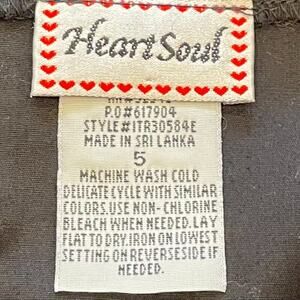 Heart Soul
P.O#617904
STYLE#ITR30584E
MADE IN SRI LANKA
5
MACHINE WASH COLD
DELICATE CYCLE WITH SIMILAR
COLORS.USE NON-CHLORINE
BLEACH WHEN NEEDED.LAY
FLAT TO DRY.IRON ON LOWEST
SETTING ON REVERSE SIDE IF
NEEDED.